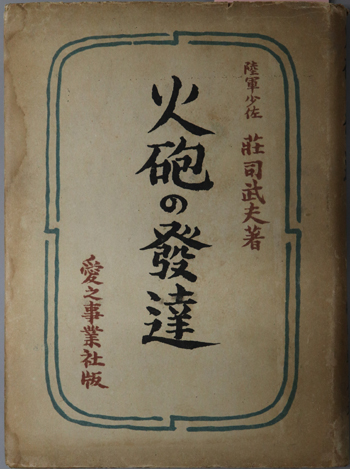 陸軍少佐 莊司武夫著
火砲の發達
愛之事業社版